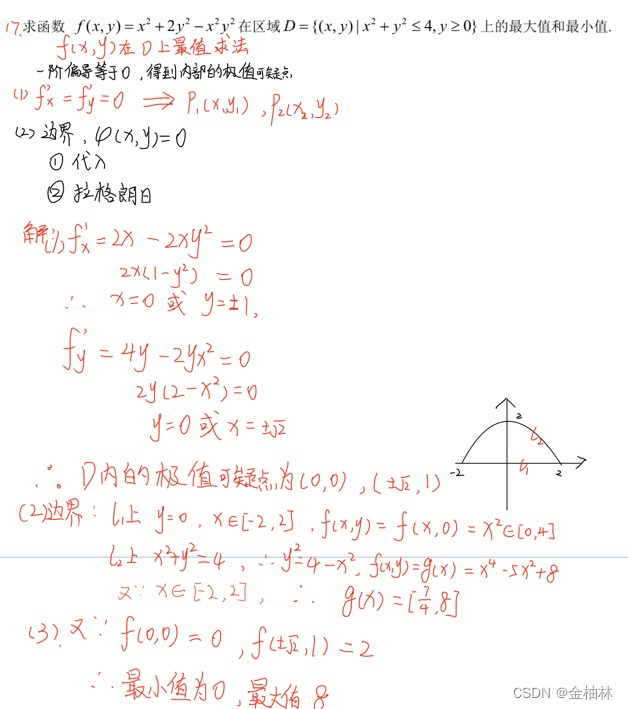 17.求函数 f(x,y)=x²+2y²-x²y² 在区域 D={(x,y)|x²+y²≤4,y≥0} 上的最大值和最小值.
f(x,y)在D上最值求法
一阶偏导等于0,得到内部的极值可疑点
(1) f'x=f'y=0 ⟹ P₁(x₁y₁),P₂(x₂,y₂)
(2) 边界,φ(x,y)=0
① 代入
② 拉格朗日
解:(1) f'x=2x-2xy²=0
2x(1-y²)=0
∴ x=0 或 y=±1,
f'y=4y-2yx²=0
2y(2-x²)=0
y=0 或 x=±√2
2
l₂
-2
l₁
2
∴ D内的极值可疑点为(0,0),(±√2,1)
(2)边界: l₁上 y=0, x∈[-2,2],f(x,y)=f(x,0)=x²∈[0,4]
l₂上 x²+y²=4, ∴y²=4-x², f(x,y)=g(x)=x⁴-5x²+8
又∵ x∈[-2,2], ∴ g(x)=[7/4,8]
(3) 又∵ f(0,0)=0,f(±√2,1)=2
∴ 最小值为0,最大值 8
CSDN @金柚林